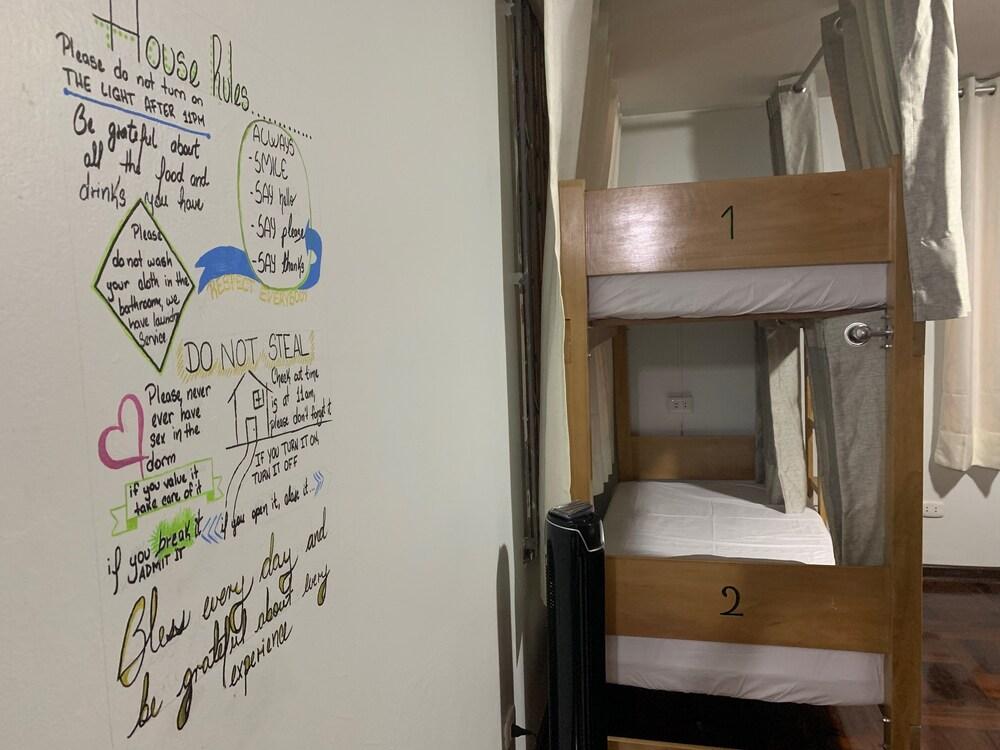 House Rules......
Please do not turn on
THE LIGHT AFTER 11PM
Be grateful about
all the food and
drinks you have
ALWAYS
-SMILE
-SAY hello
-SAY please
-SAY thanks
RESPECT EVERYBODY
Please
do not wash
your cloth in the
bathrooms, we
have laundry
Service
DO NOT STEAL
Please, never
ever have
sex in the
dorm
Check out time
is at 11am,
please don't forget it
IF YOU TURN IT ON,
TURN IT OFF
if you value it
take care of it
if you open it, close it..
if you break it
ADMIT IT
Bless every day and
be grateful about every
experience
1
2